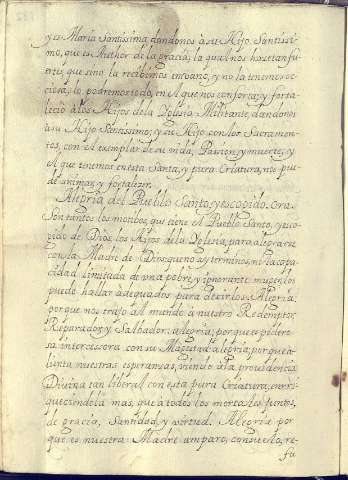 y es Maria Santissima dandonos à su Hijo Santissi-
mo, que es Author de la gracia, la qual nos hace tan fu-
ertes, que sino la recibimos em bano, y no la tenemos o-
ciosa, lo podremos todo, en el que nos conforta; y forta-
leciò à los Hijos de la Yglesia Militante, dandonos
à su Hijo Santissimo; y su Hijo con los Sacramen-
tos, con el exemplar de su vida, Passion, y muerte; y
el que tenemos en esta Santa, y pura Criatura, nos pu-
de animar, y fortalizer.
Alegria del Pueblo Santo, y escogido. Ora
Son tantos los motibos, que tiene el Pueblo Santo, y esco-
gido de Dios, los Hijos de la Yglesia, para alegrarse
con la Madre de Dios; que no ay terminos, ni la capa-
cidad limitada de una pobre, y ignorante muger, los
puede hallar àdequados para decirlos: Alegria;
porque nos trajo àl mundo à nuestro Redemptor,
Reparador, y Salbador: alegria; porque es podero-
sa intercessora con su Magestad: alegria; porque à-
lienta nuestras esperansas, viendo à la providencia
Divina tan liberal con esta pura Criatura, enrri-
queciendola mas, que à todos los mortales juntos,
de gracia, Santidad, y virtud. Alegria por
que es nuestra Madre, amparo, consuelo, re-
fu